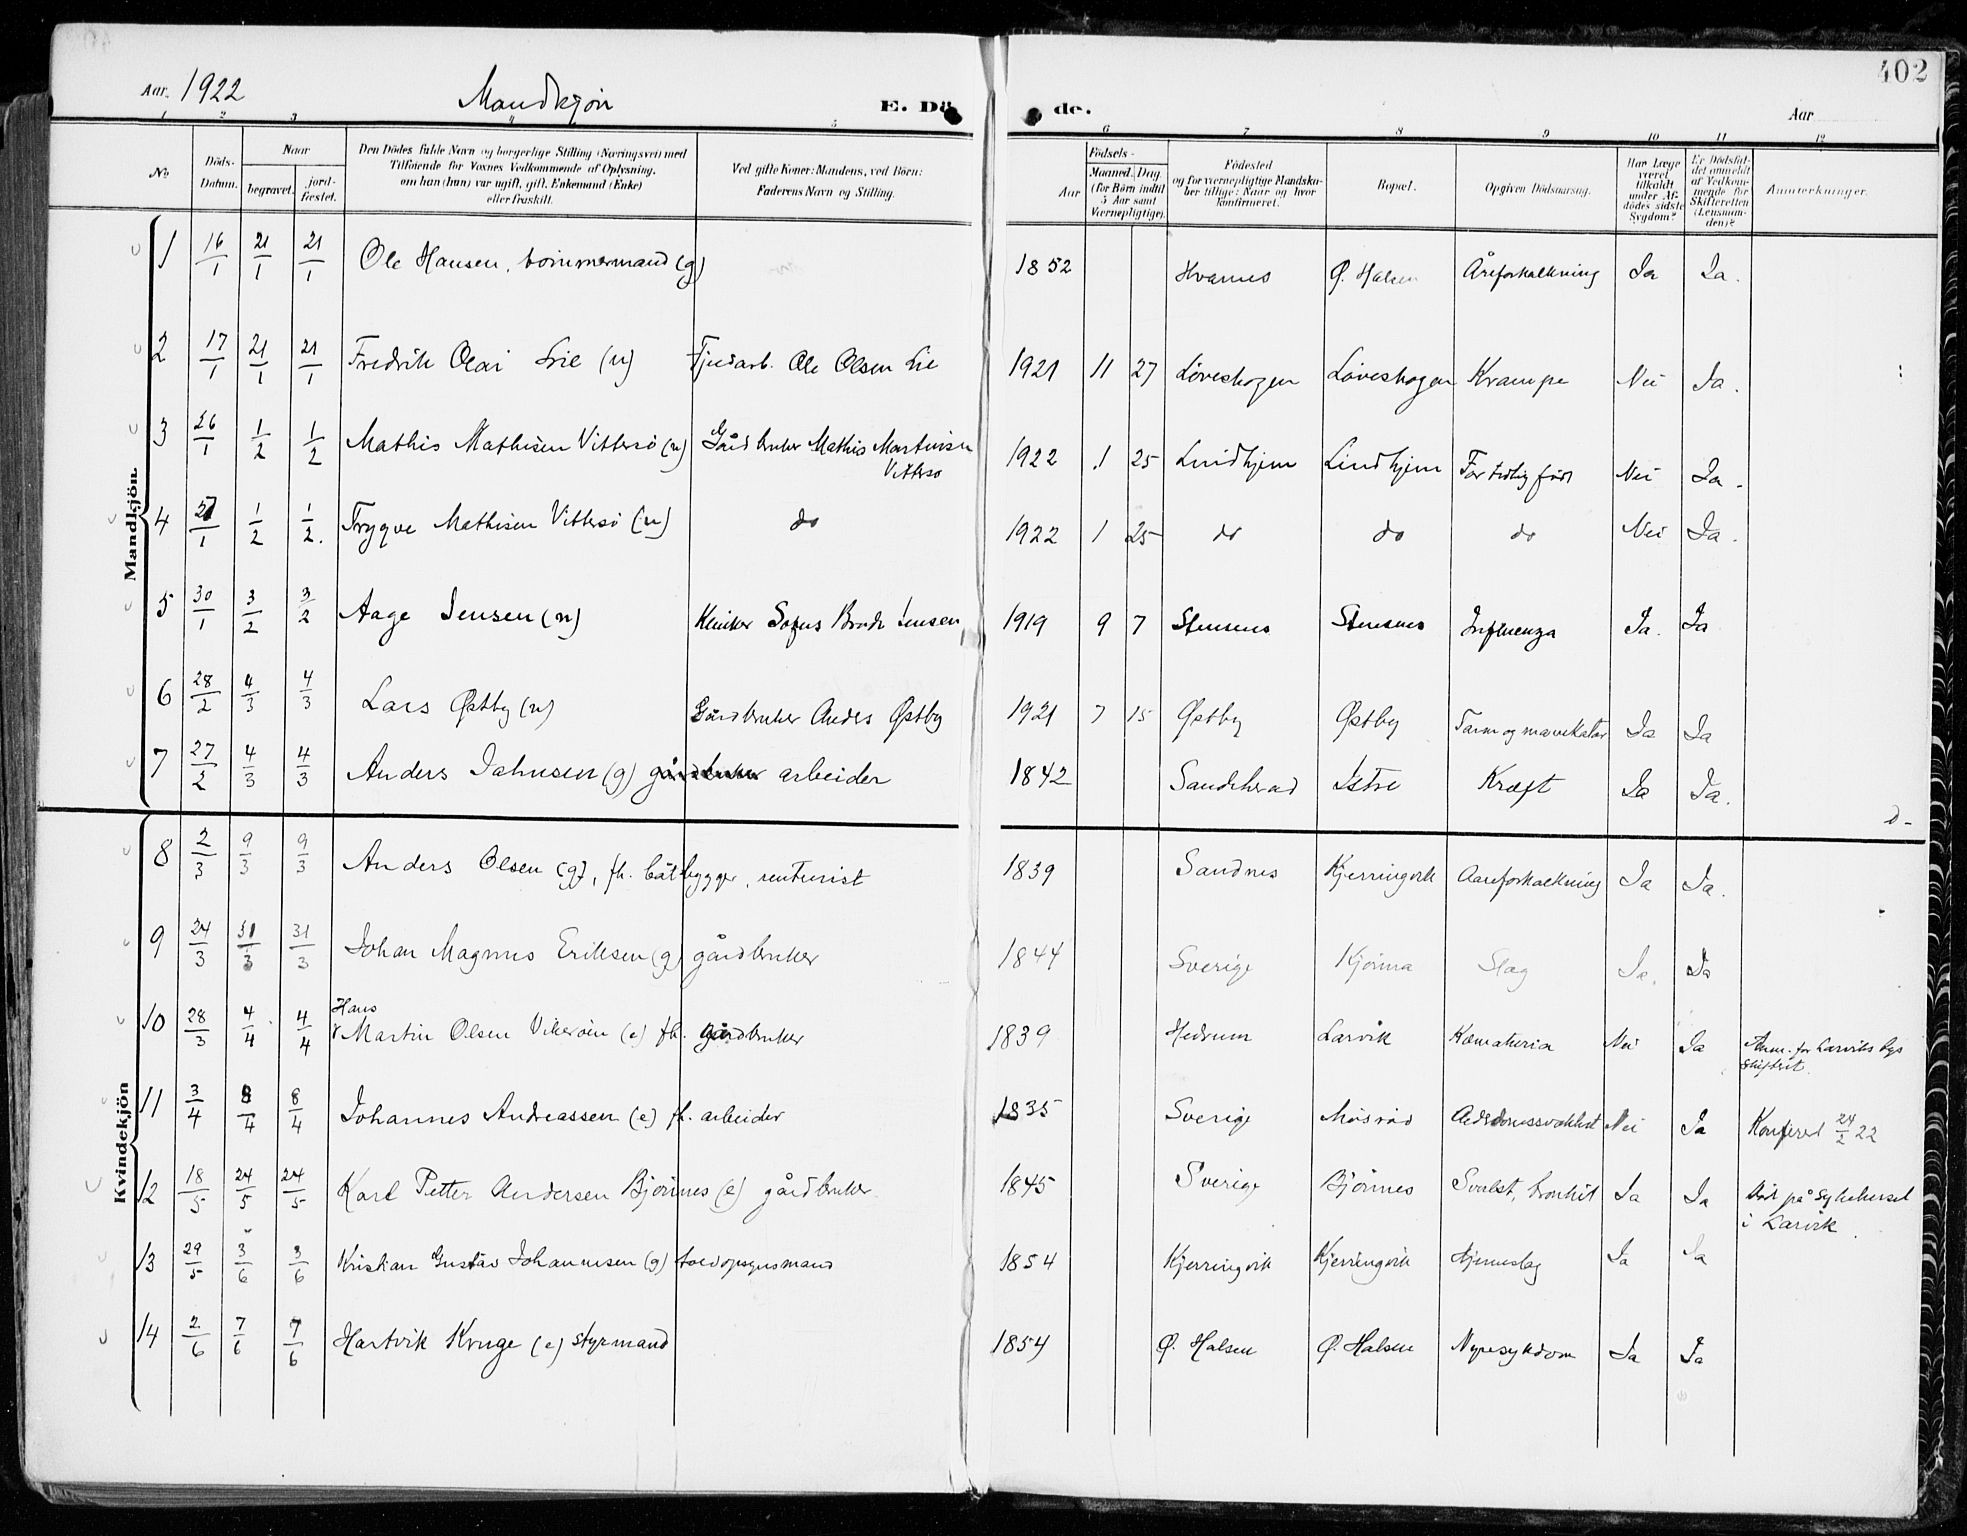 402
Aar. 1922 Mandkjøn E. Dö de. Aar
1 2 3 4 5 6 7 8 9 10 11 12
No
Döds-Datum.
Naar
begravet.
jord-fæstet.
Den Dödes fulde Navn og borgerlige Stilling (Næringsvei) med
Tilföiende for Voxnes Vedkommende af Oplysning,
om han (hun) var ugift, gift, Enkemand (Enke)
eller fraskilt.
Ved gifte Koner: Mandens, ved Börn:
Faderens Navn og Stilling.
Födsels-
Aar
Maaned. Dag
(for Börn indtil
5 Aar samt
Værnepligtige).
Födested
og for værnepligtige Mandska-
ber tillige: Naar og hvor
konfirmeret.
Bopæl.
Opgiven Dödsaarsag.
Har Læge
været
tilkaldt
under Af-
dödes sidste
Sygdom?
Er Dödsfal-
det anmeldt
af Vedkom-
mende for
Skifteretten
(Lensman-
den)?
Anmerkninger.
Mandkjön
1 16/1 21/1 21/1 Ole Hansen, tømmermand (g) 1852 Hvarnes Ø. Halsen Åreforkalkning Ja Ja.
2 17/1 21/1 21/1 Fredrik Olai Lie (n) Fjøsarb. Ole Olsen Lie 1921 11 27 Løveskogen Løveskogen Krampe Nei Ja.
3 26/1 1/2 1/2 Mathis Mathisen Vittersø (n) Gårdbruker Mathis Martinsen Vittersø 1922 1 25 Lindhjem Lindhjem For tidlig født Nei Ja.
4 27/1 1/2 1/2. Trygve Mathisen Vittersø (n) do 1922 1 25 do do do Nei Ja.
5 30/1 3/2 3/2 Aage Jensen (n) Sofus Jensen 1919 9 7 Stensnes Stensnes Influenza Ja. Ja
6 28/2 4/3 4/3 Lars Østby (n) Gårdbruker Anders Østby 1921 7 15 Østby Østby Tarm og mavekatar Ja Ja
7 27/2 4/3 4/3 Anders Jahnsen (g) gårdbruker arbeider 1842 Sandeherad Istre Kræft Ja Ja.
Kvindekjön
8 2/3 9/3 9/3 Anders Olsen (g), fh. båtbygger, rentenist 1839 Sandnes Kjerringvik Aareforkalkning Ja Ja.
9 24/3 31/3 31/3 Johan Magnus Eriksen (g) gårdbruker 1844 Sverige Kjønna Slag Ja. Ja
10 28/3 4/4 4/4 Hans Martin Olsen Vikerøen (e) fh. gårdbruker 1839 Hedrum Larvik Hæmaturia Nei Ja Anm. for Larviks bys skifteret.
11 3/4 8/4 8/4 Johannes Andreassen (e) fh. arbeider 1835 Sverige Møsrød Alderdomssvakhet Nei Ja Konfered 24/2 22
12 18/5 24/5 24/5 Karl Petter Andersen Bjønnes (e) gårdbruker 1845 Sverige Bjønnes Svulst, bronkit Ja Ja Død på sykehuset
i Larvik.
13 29/5 3/6 3/6 Kristian Gustav Johannesen (g) toldopsynsmand 1854 Kjerringvik Kjerringvik Hjerneslag Ja Ja
14 2/6 7/6 7/6 Hartvik Kruge (e) styrmand 1854 Ø. Halsen Ø. Halsen Nyresykdom Ja Ja